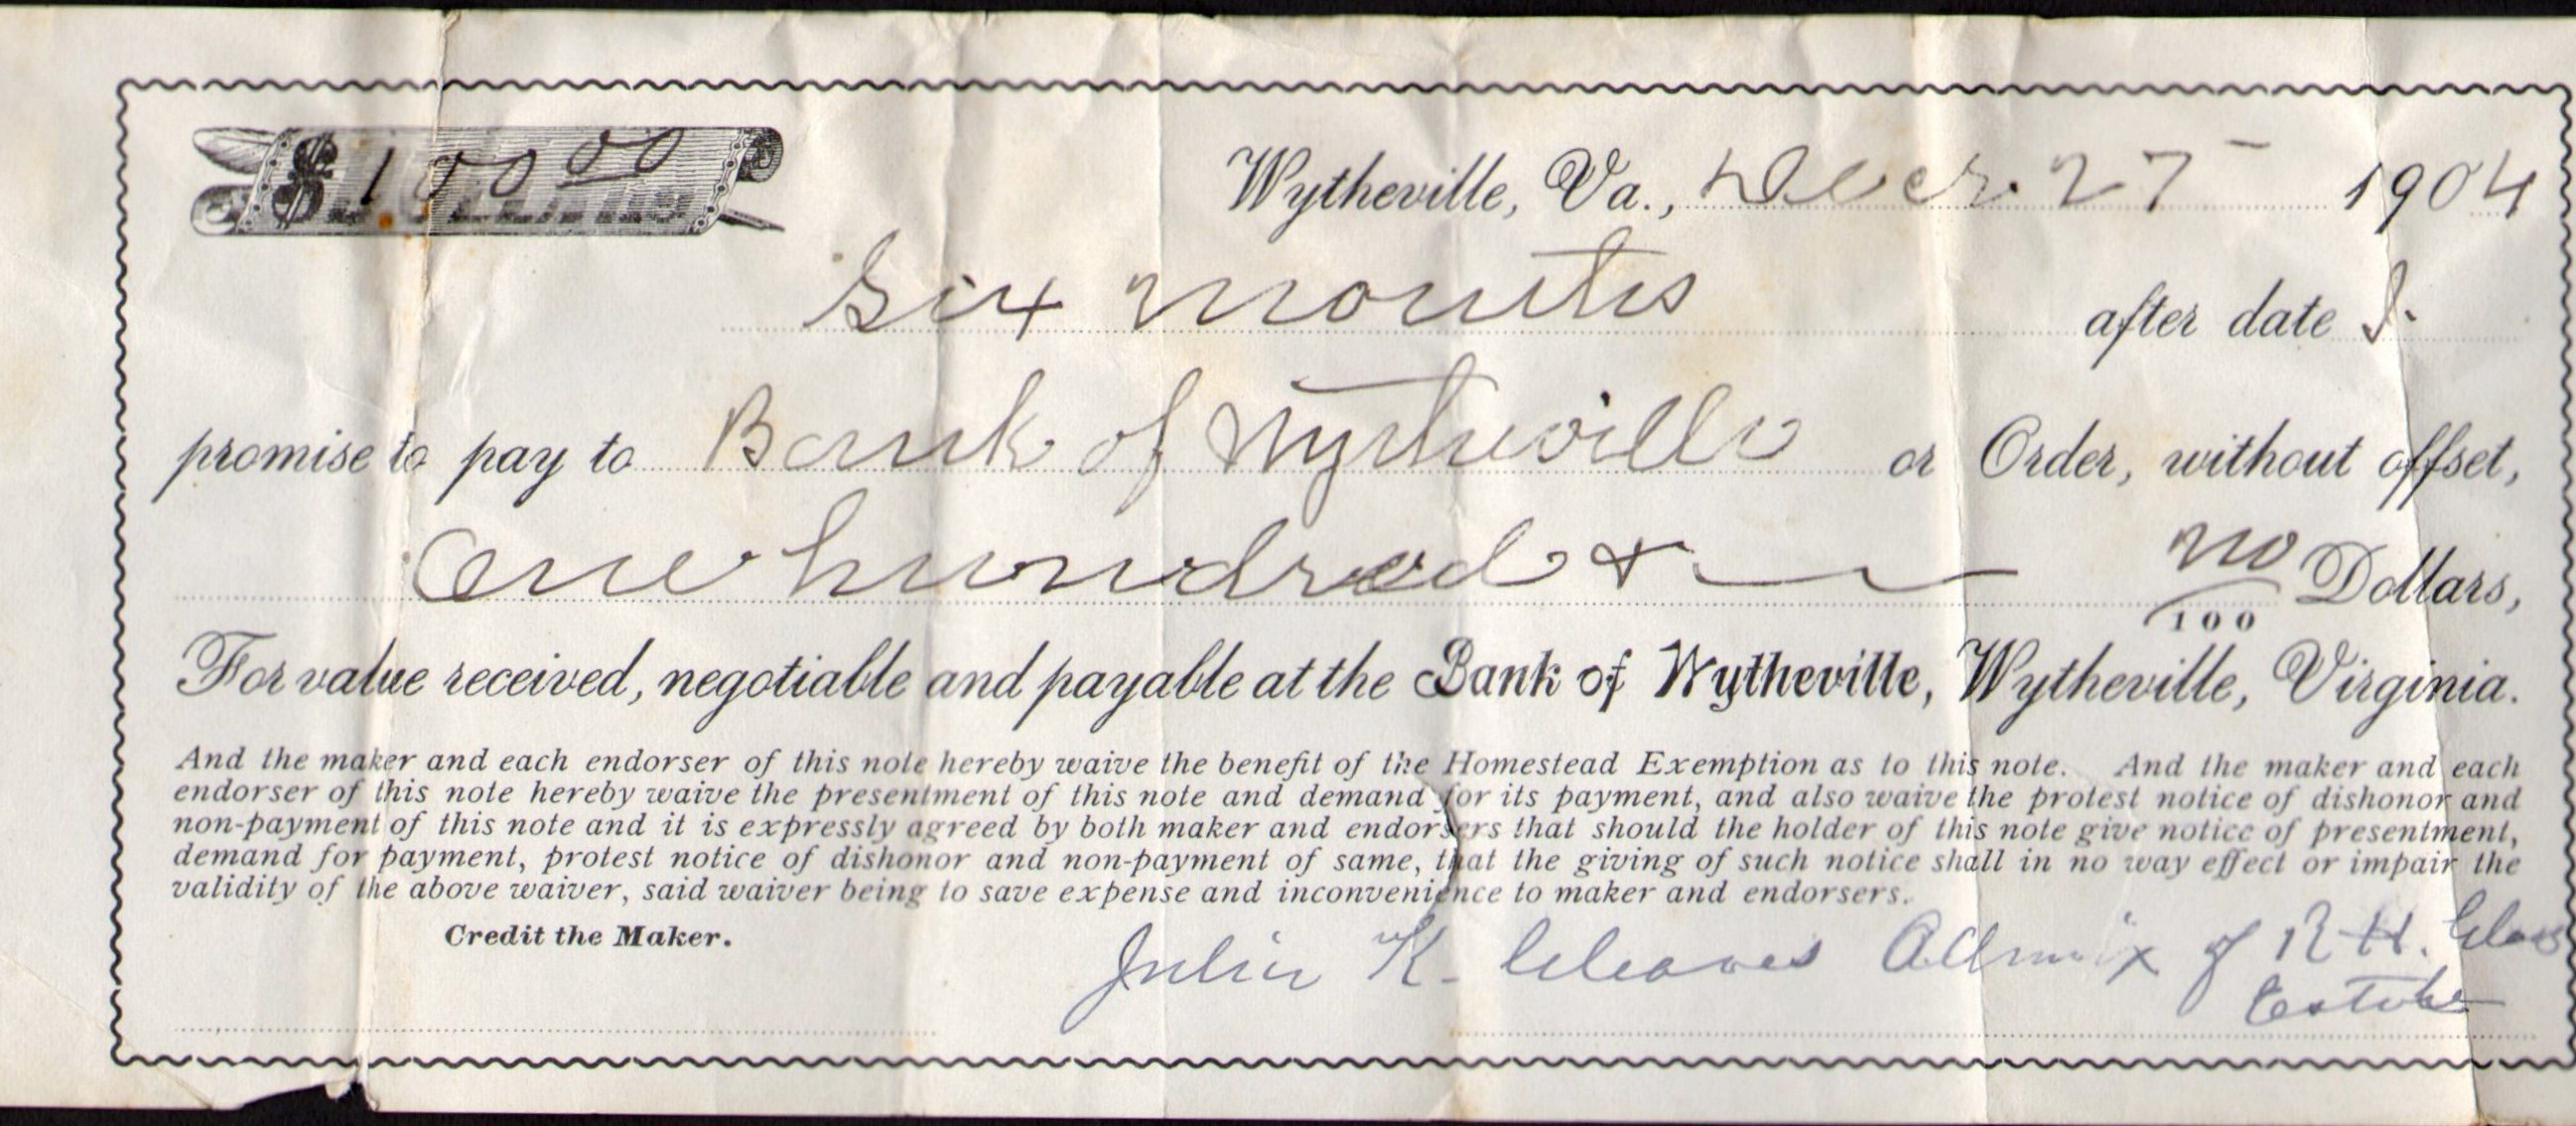 $100 00
Wytheville, Va., Decr. 27 1904
Six months after date I
promise to pay to Bank of Wytheville or Order, without offset,
One hundred & no/100 Dollars,
For value received, negotiable and payable at the Bank of Wytheville, Wytheville, Virginia.
And the maker and each endorser of this note hereby waive the benefit of the Homestead Exemption as to this note. And the maker and each
endorser of this note hereby waive the presentment of this note and demand for its payment, and also waive the protest notice of dishonor and
non-payment of this note and it is expressly agreed by both maker and endorsers that should the holder of this note give notice of presentment,
demand for payment, protest notice of dishonor and non-payment of same, that the giving of such notice shall in no way effect or impair the
validity of the above waiver, said waiver being to save expense and inconvenience to maker and endorsers.
Credit the Maker.
Julia K. Cleaves Admix of R H.
Estate